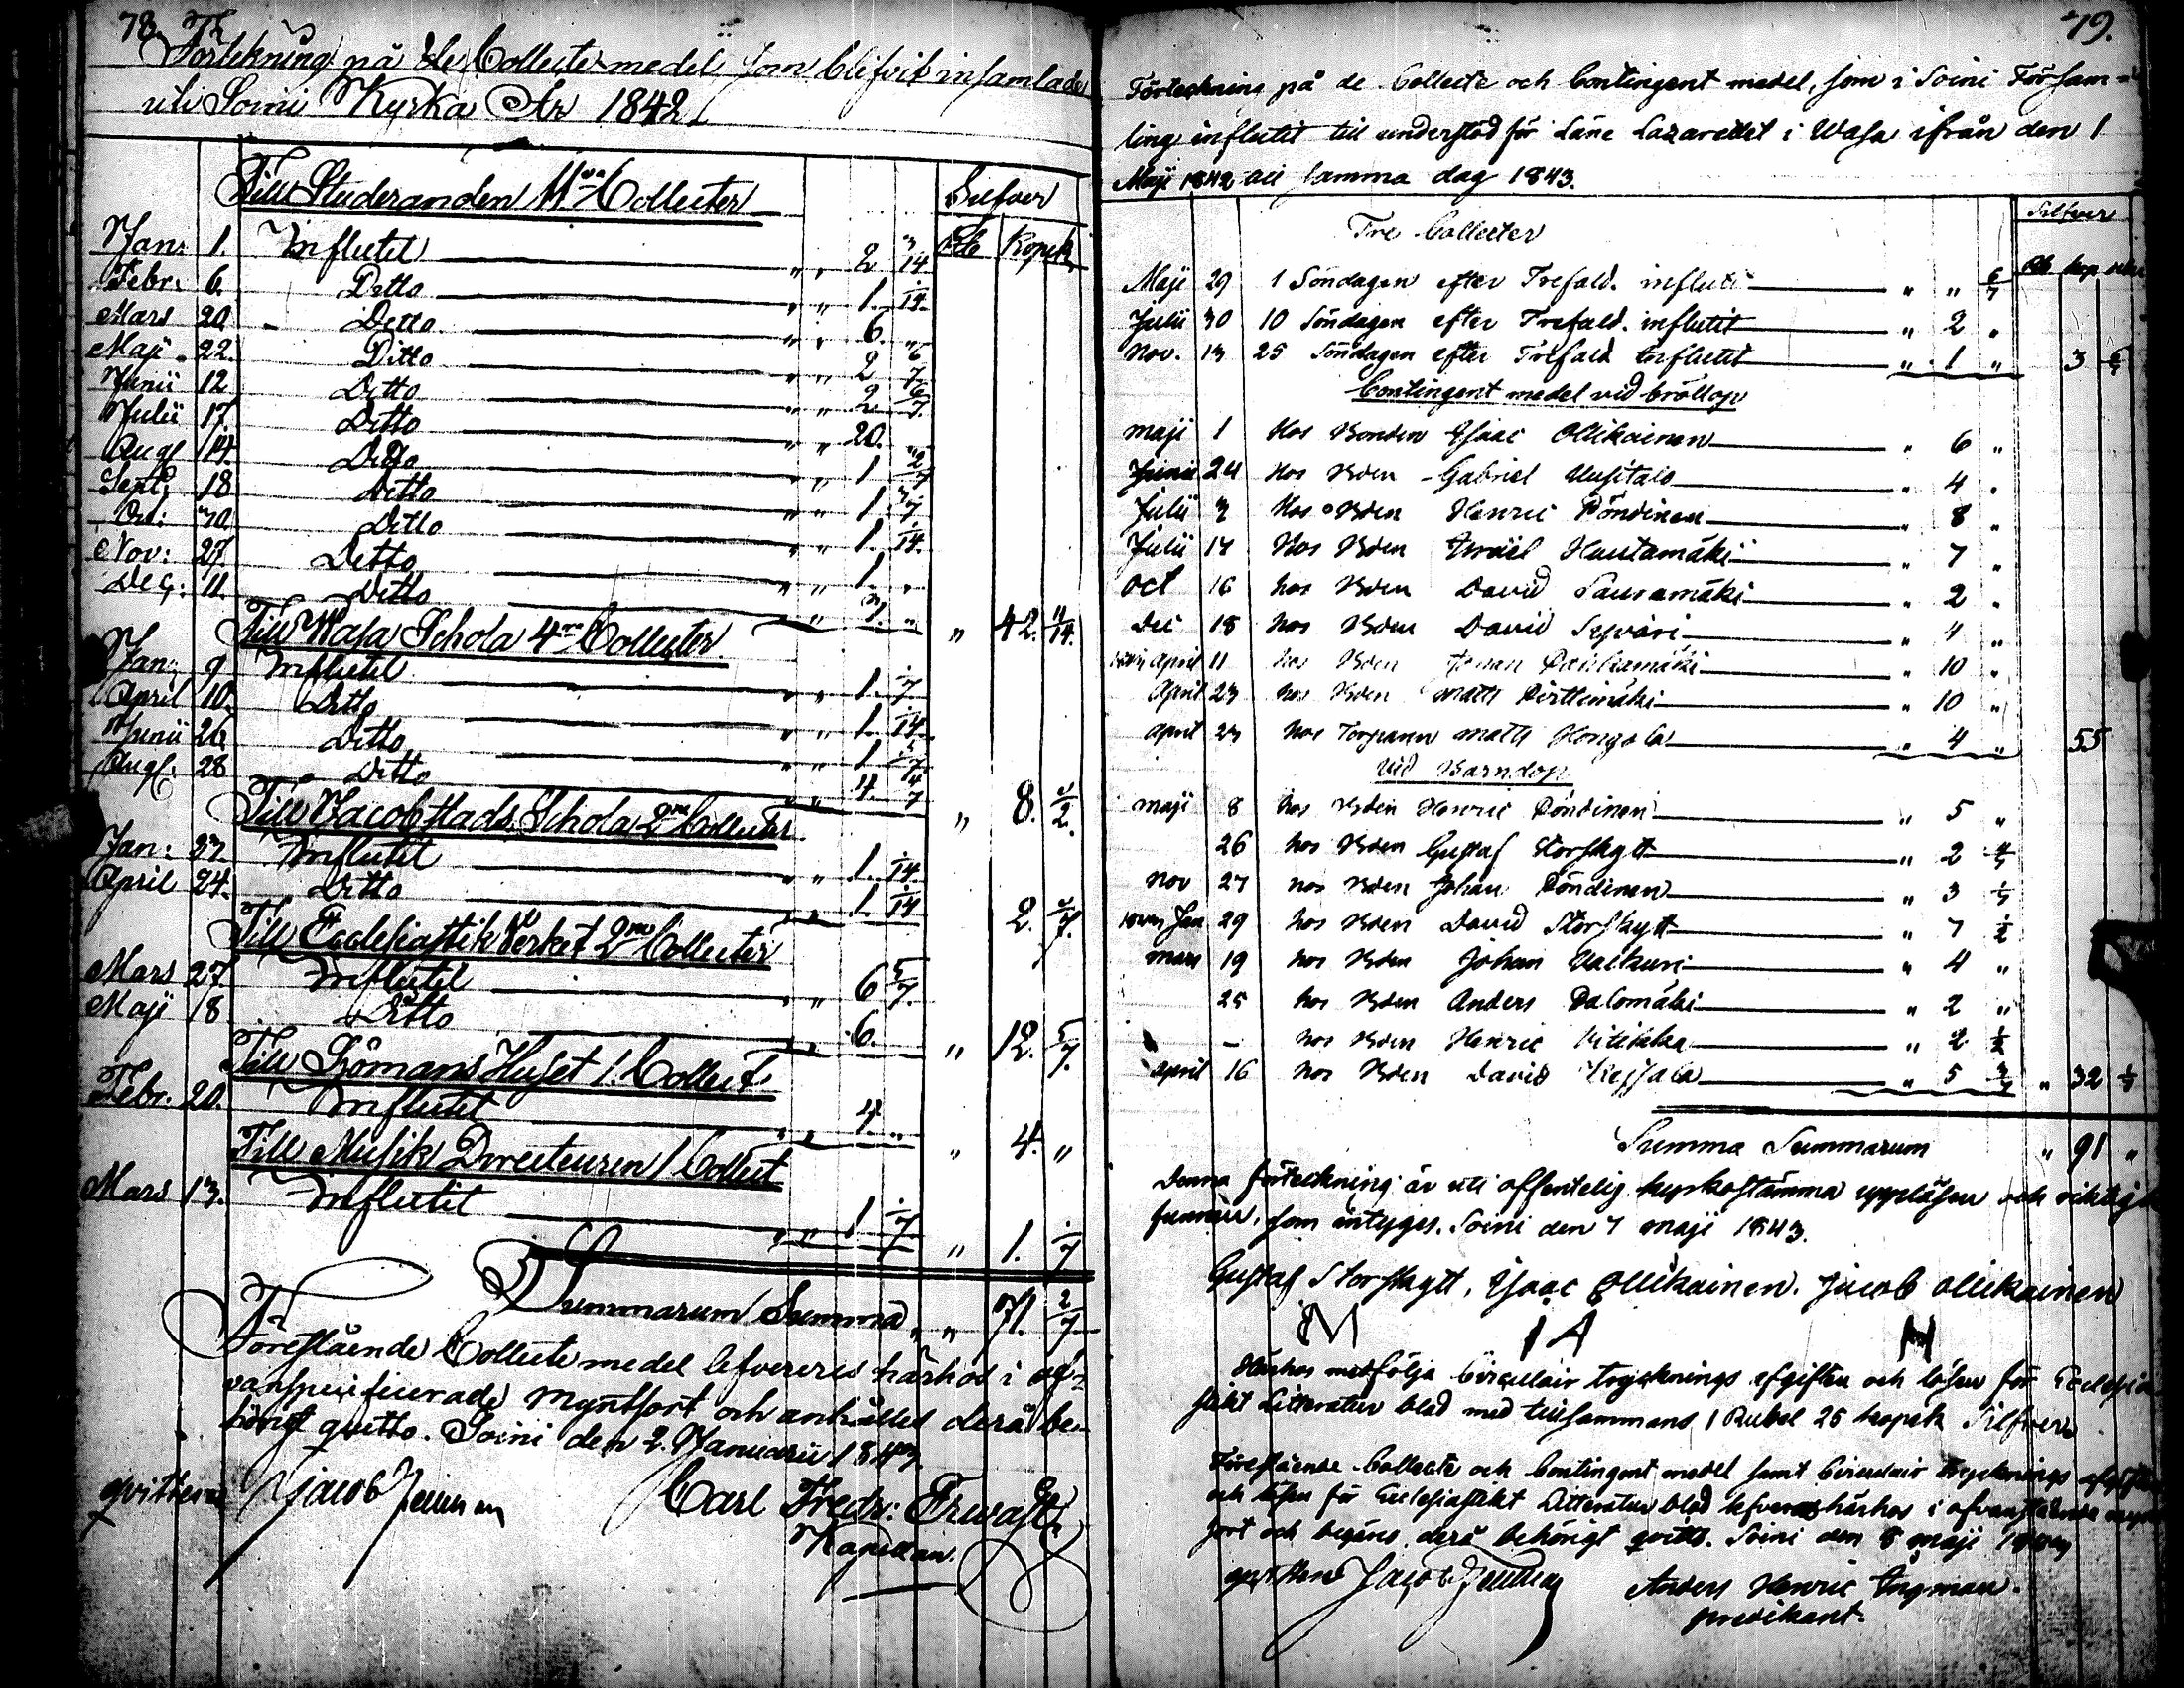 78.
Förtekning på de Collecte medel som blifvit insamlade
uti Soini Kyrka År 1842
Till Studeranden 11va Collecter
Silfver
Rb Kopek
Jan: 1. Influtit " " 2 3/14
Febr: 6. Ditto " " 1. 1/14
Mars 20 Ditto " " 6. "
Maji 22. Ditto " " 2 6/7
Junii 12 Ditto " " 2 6/7
Julii 17. Ditto " " 20. "
Aug 14. Ditto " " 1 2/7
Sept; 18 Ditto " " 1 3/7
Oct: 30. Ditto " " 1. 1/14.
Nov: 27. Ditto " " 1. "
Dec: 11. Ditto " " 3. " " 42. 11/14.
Till Wasa Schola 4ra Collecter
Jan: 9 Influtit " " 1. 1/7.
April 10. Ditto " " 1. 1/14
Junii 26 Ditto " " 1 5/7
Aug: 28 Ditto " " 4. 4/7 " 8. 1/2.
Till Jacobstads Schola 2ne Collecter
Jan: 23 Influtit " " 1. 1/14.
April 24. Ditto " " 1. 1/14 2. 1/7.
Till Ecclesiastik Verket 2ne Collecter
Mars 27 Influtit " " 6 5/7.
Maji 8 Ditto " " 6. " 12. 5/7.
Till Sjömans Huset 1. Collect
Febr. 20. Influtit " " 4. " " 4. "
Till Musik Directeuren 1 Collect
Mars 13. Influtit " " 1 1/7 " 1. 1/7
Summarum Summa " " 71. 2/7
Förestående Collecte medel lefvereres härhos i of-
vanspecificerade Myntsort och anhålles derå be-
hörigt qvitto. Soini den 2. Januarii 1843.
qvitteras Jacob Carl Fredr:
Kapellan
79.
Förteckning på de Collecte och Contingent medel, som i Soini Församl-
ling influtit till understöd för Läne Lazarettet i Wasa ifrån den 1
Maji 1842 till samma dag 1843.
Silfver
Tre Collecter
Rb kop
Maji 29 1 Söndagen efter Trefald. influtit " " 6/7
Julii 30 10 Söndagen efter Trefald. influtit " 2 "
Nov. 13 25 Söndagen efter Trefald influtit " 1 " 3 6/7
Contingent medel vid bröllop
maji 1 Hos Bonden Isaac Ollikainen " 6 "
Junii 24 Hos Bden Gabriel Uusitalo " 4 "
Julii 3 Hos Bden Henric Pöndinen " 8 "
Julii 14 Hos Bden Israël Hautamäki " 7 "
oct 16 hos Bden David Sauramäki " 2 "
Dec 18 hos Bden David " 4 "
1843 april 11 hos Bden Johan " 10 "
April 23 hos Bden Matts " 10 "
april 23 hos Torparn matts Hongola " 4 " 55
Vid Barndop
maji 8 hos Bden Henric Pöndinen " 5 "
26 hos Bden Gustaf Storskytt " 2 4/7
nov 27 hos Bden Johan Pöndinen " 3 1/7
1843 Jan 29 hos Bden David Storskytt " 7 1/2
mars 19 hos Bden Johan " 4 "
25 hos Bden Anders Palomäki " 2 "
– hos Bden Henric " 2 1/2
april 16 hos Bden David " 5 3/7 " 32 1/7
Summa Summarum " 91 "
Denna förteckning är uti offentelig kyrkostämma uppläsen och riktig
funnen, som intyges. Soini den 7 maji 1843.
Gustaf Storskytt, Isaac Ollikainen. Jacob Ollikainen
M I A H
Härhos medfölja Circulair trycknings afgiften och lösen för Ecclesia
stikt Litteratur blad med tillsammans 1 Rubel 25 kopek Silfver
Förestående Collecte och Contingent medel samt Circulair trycknings afgiften
och lösen för Ecclesiastikt Litteratur blad lefvereras härhos i ofvanstående mynt
sort och begäres derå behörigt qvitto. Soini den 8 maji 1843
qvitteras Jacob Anders Henric Ingman.
predikant.